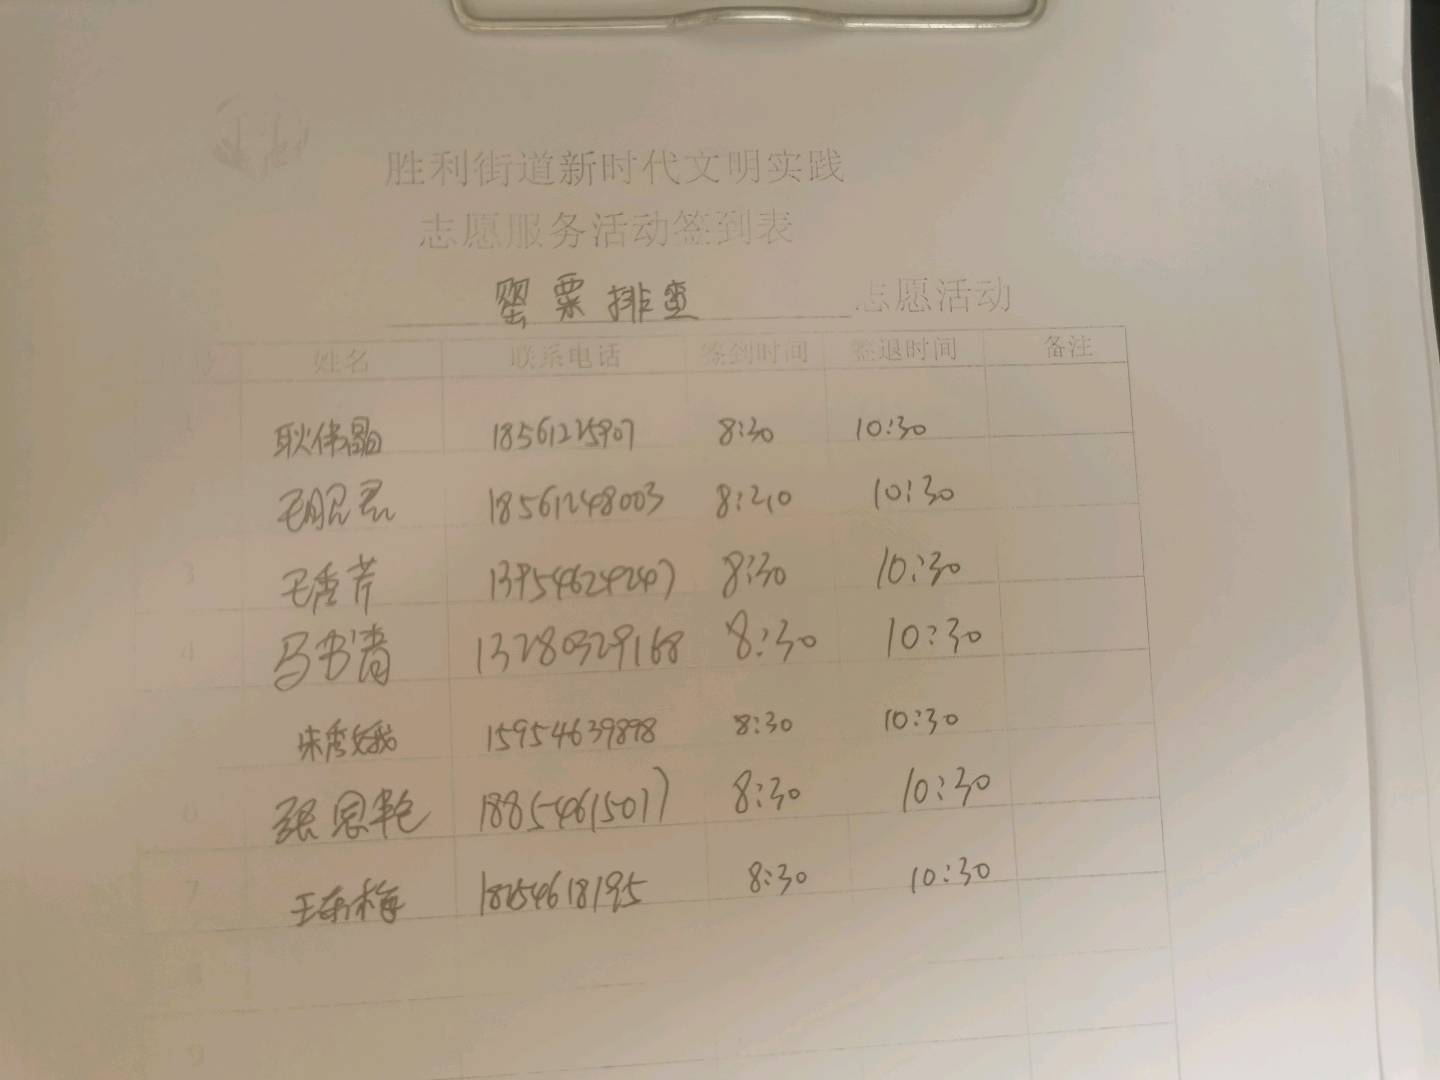 胜利街道新时代文明实践
志愿服务活动签到表
罂粟排查 志愿活动
姓名 联系电话 签到时间 签退时间 备注
1 耿伟晶 18561225907 8:30 10:30
18561248003 8:30 10:30
3 毛秀芹 13954624247 8:30 10:30
4 马书清 13280329168 8:30 10:30
宋秀娥 15954639898 8:30 10:30
6 张恩艳 18854615017 8:30 10:30
7 王东梅 18254618195 8:30 10:30
8
9